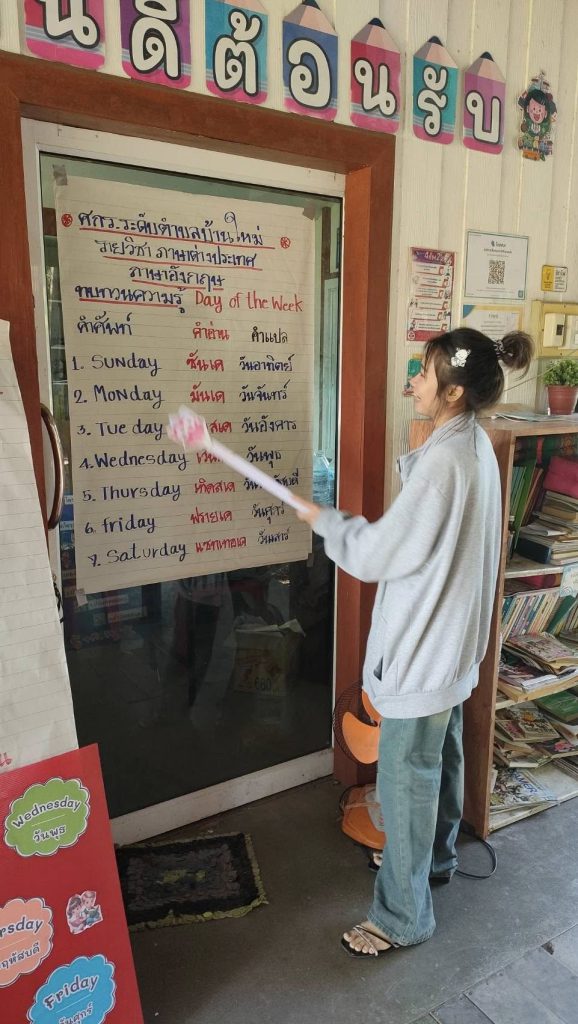 นดีต้อนรับ
ศกร.ระดับตำบลบ้านใหม่
รายวิชา ภาษาต่างประเทศ
ภาษาอังกฤษ
ทบทวนความรู้ Day of the Week
คำศัพท์ คำอ่าน คำแปล
1. Sunday ซันเด วันอาทิตย์
2. Monday มันเด วันจันทร์
3. Tue day สเด วันอังคาร
4. Wednesday วันพุธ
5. Thursday เทิดสเด
6. friday ฟรายเด วันศุกร์
7. Saturday แซทเทอเด วันเสาร์
Wednesday
วันพุธ
rsday
ฤหัสบดี
Friday
วันศุกร์